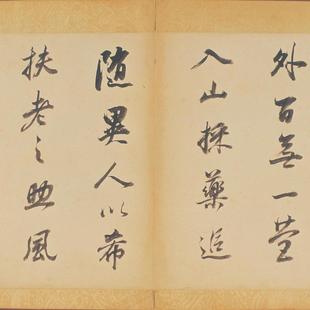 外百無一營
入山採藥追
隨異人以希
扶老之風